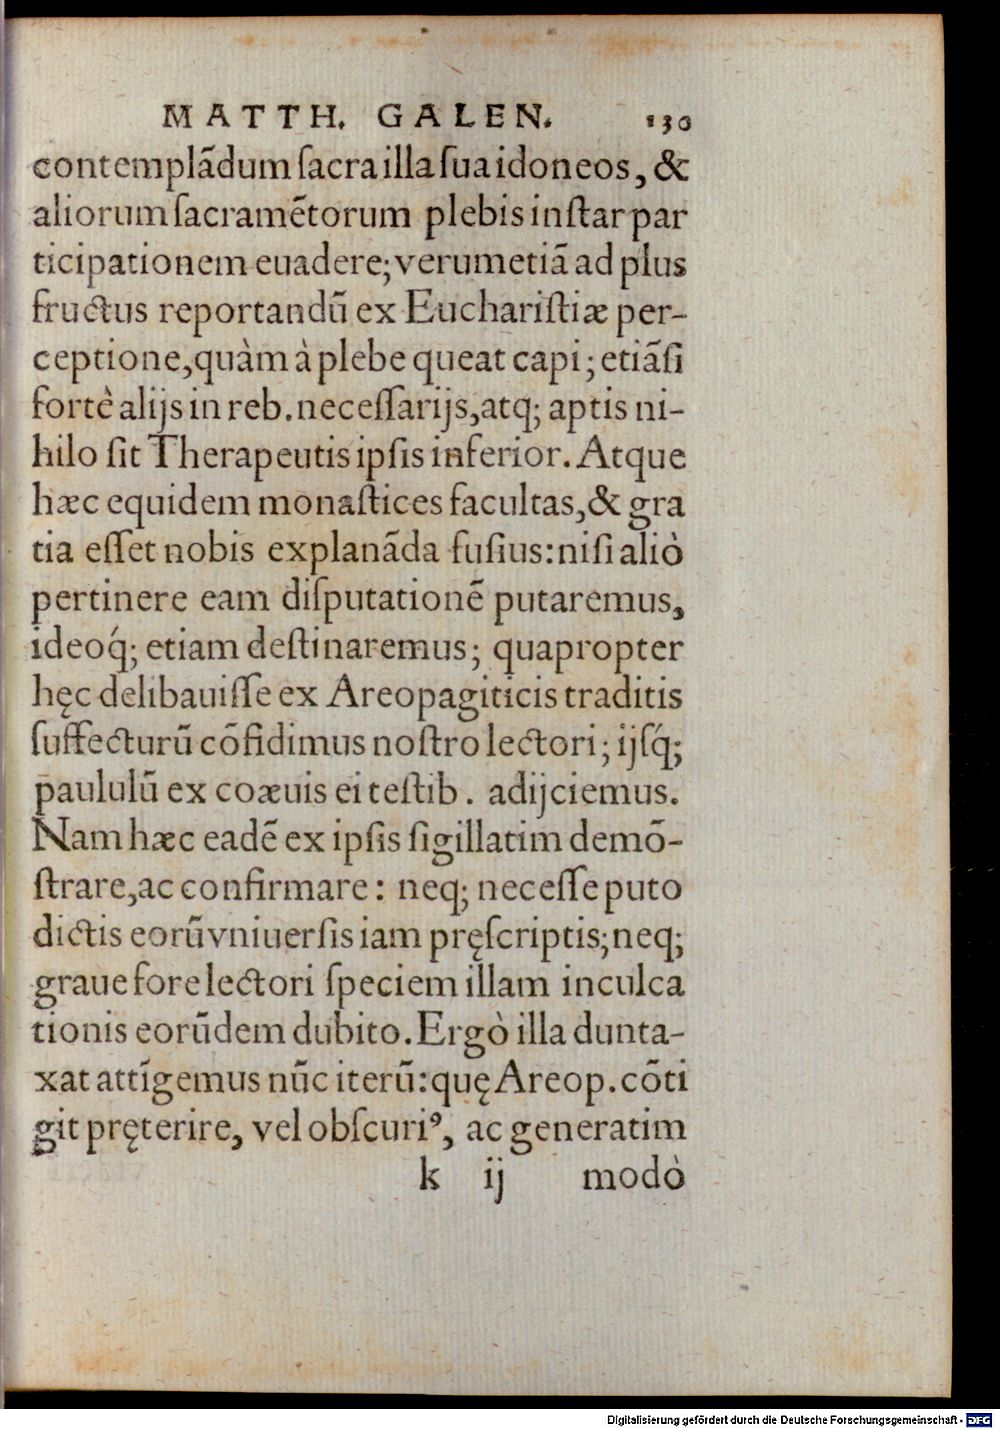 MATTH. GALEN. 130
contemplãdum ſacra illa ſua idoneos, &
aliorum ſacramẽtorum plebis inſtar par
ticipationem euadere; verumetiã ad plus
fructus reportandũ ex Euchariſtiæ per-
ceptione, quàm à plebe queat capi; etiãſi
fortè alijs in reb. neceſſarijs, atq; aptis ni-
hilo ſit Therapeutis ipſis inferior. Atque
hæc equidem monaſtices facultas, & gra
tia eſſet nobis explanãda fuſius: niſi aliò
pertinere eam diſputationẽ putaremus,
ideoq́; etiam deſtinaremus; quapropter
hęc delibauiſſe ex Areopagiticis traditis
ſuffecturũ cõfidimus noſtro lectori; ijſq́;
paululũ ex coæuis ei teſtib. adijciemus.
Nam hæc eadẽ ex ipſis ſigillatim demõ-
ſtrare, ac confirmare: neq; neceſſe puto
dictis eorũ vniuerſis iam pręſcriptis; neq;
graue fore lectori ſpeciem illam inculca
tionis eorũdem dubito. Ergò illa dunta-
xat attĩgemus nũc iterũ: quę Areop. cõti
git pręterire, vel obſcuriꝰ, ac generatim
k ij modò
Digitalisierung gefördert durch die Deutsche Forschungsgemeinschaft - DFG